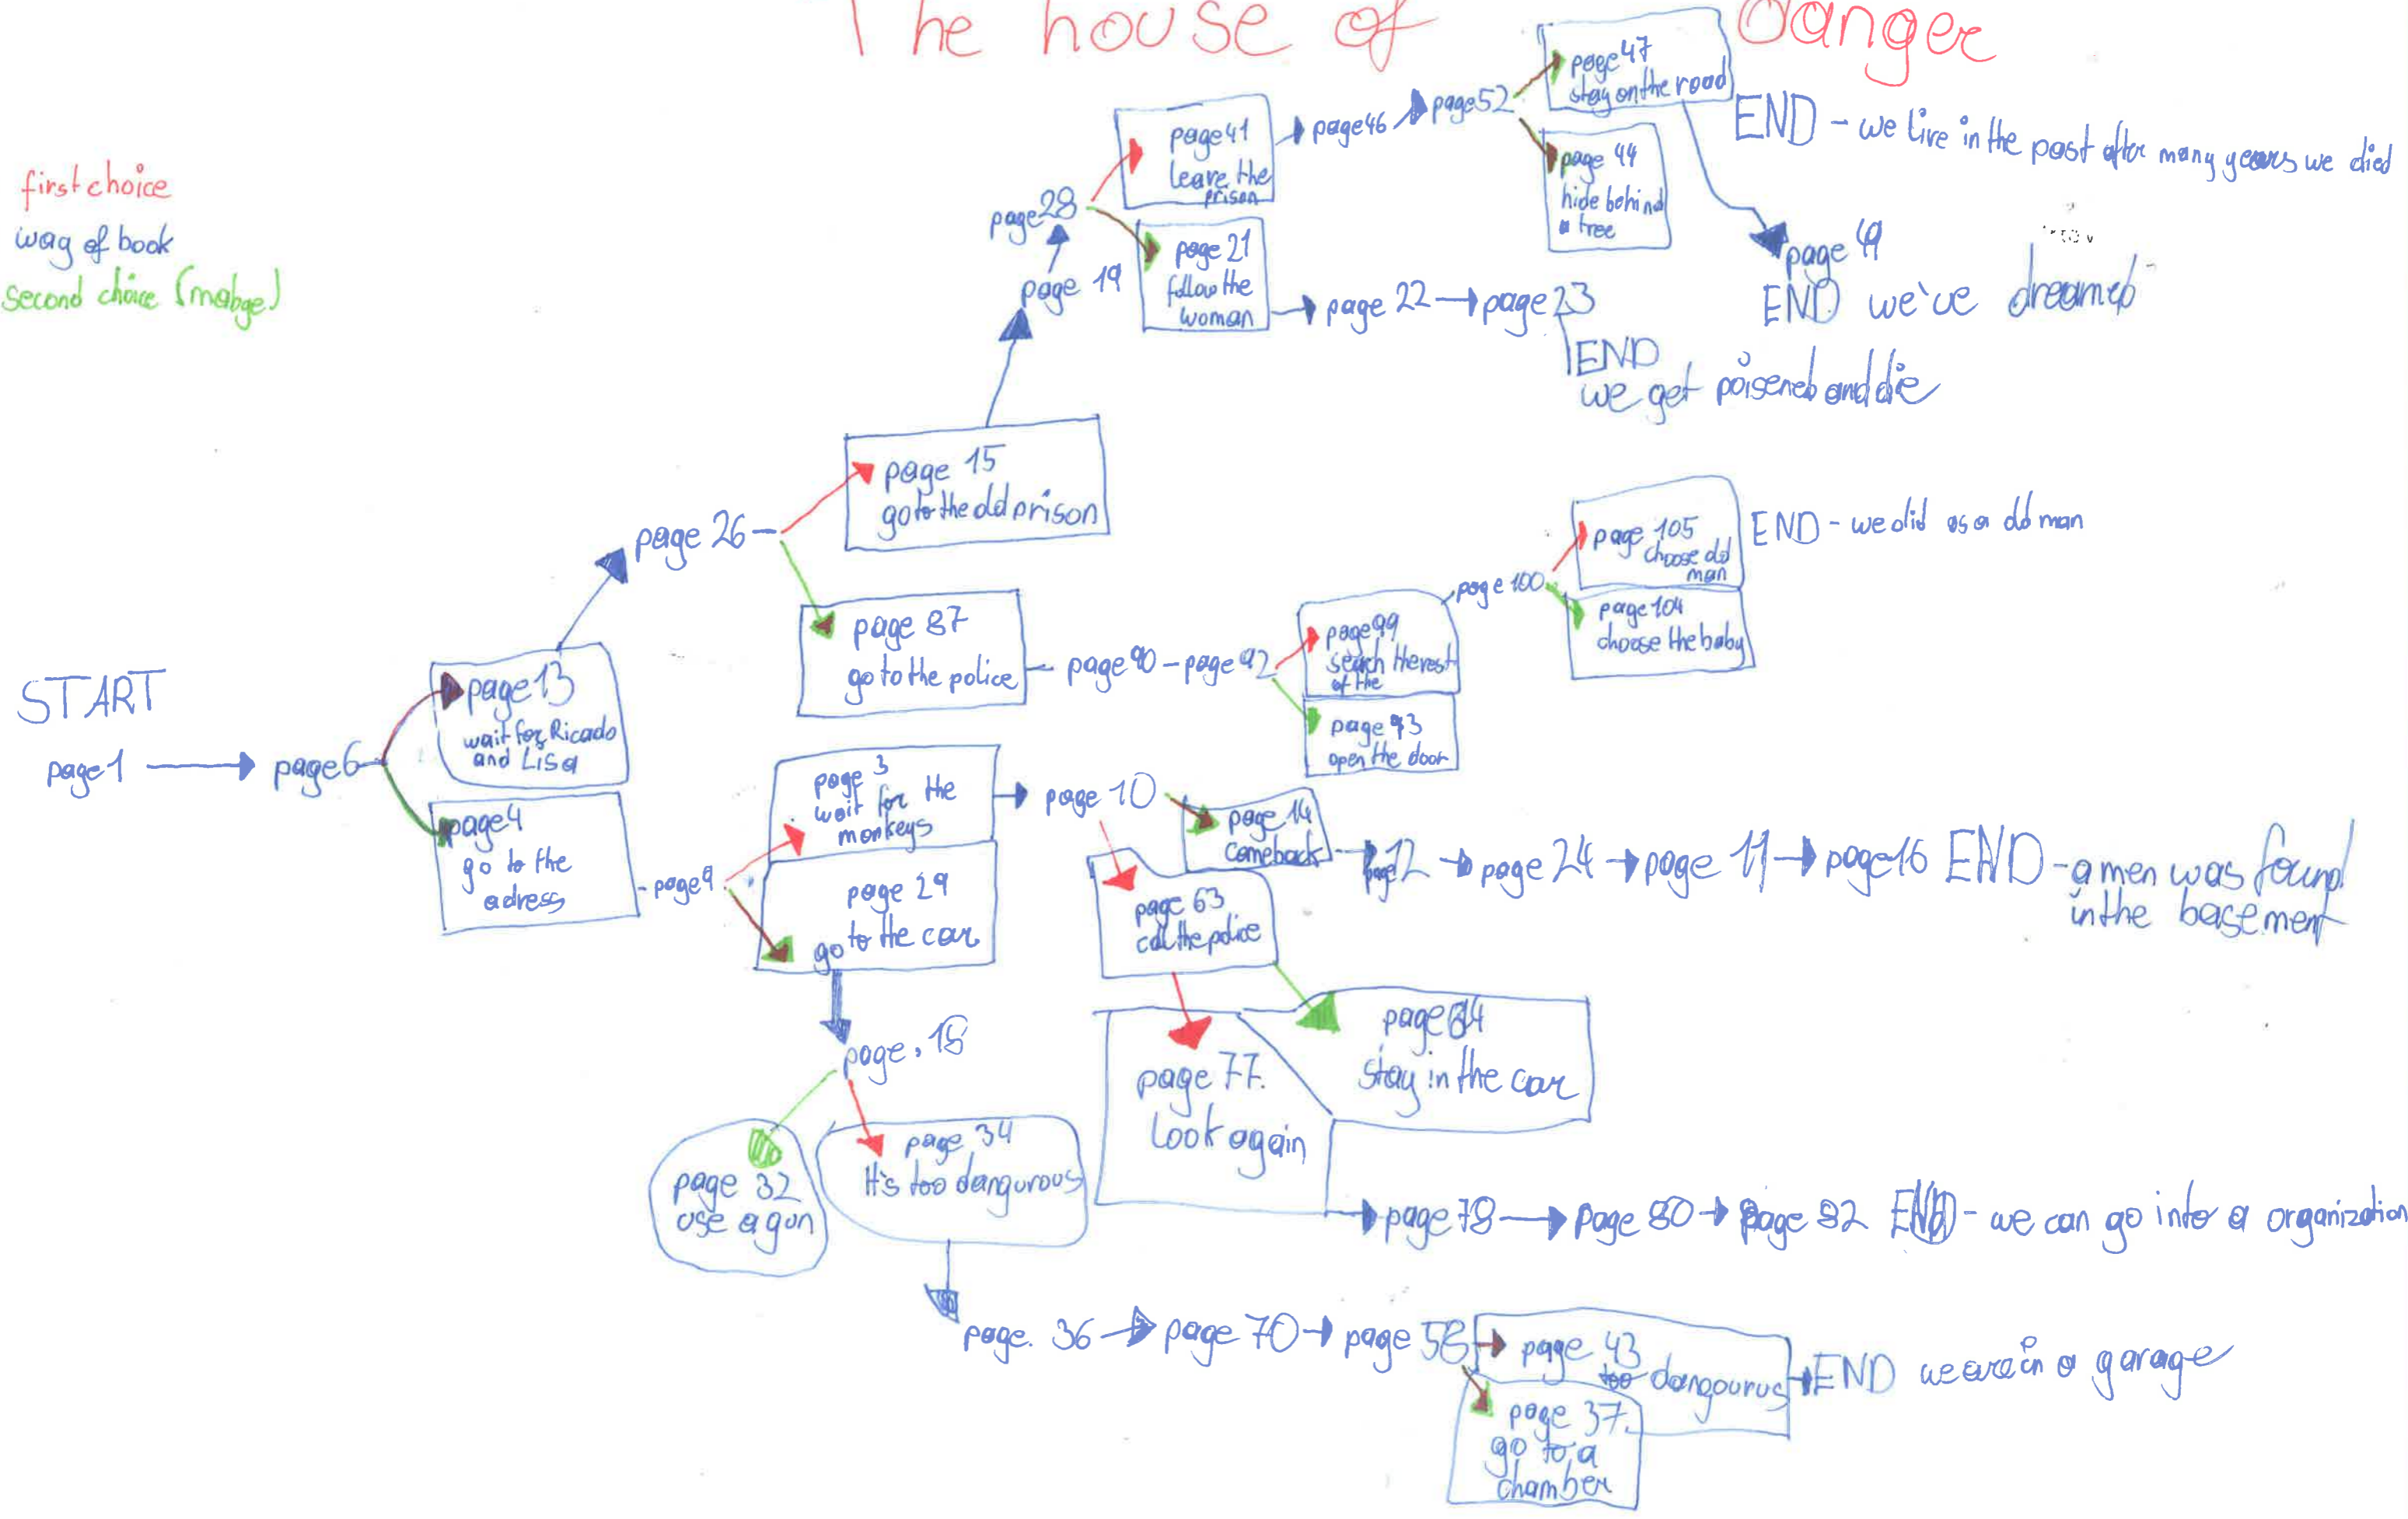 The house of danger
first choice
way of book
second choice (mabge)
START
page 1
page 6
page 13
wait for Ricado
and Lisa
page 4
go to the
adress
page 26
page 15
go to the old prison
page 19
page 28
page 41
leave the
prison
page 46
page 52
page 47
stay on the road
END - we live in the past after many years we died
page 44
hide behind
a tree
page 49
END we've dreamed
page 21
follow the
woman
page 22
page 23
END
we get poisened and die
page 87
go to the police
page 90 - page 92
page 99
search the rest
of the
page 93
open the door
page 100
page 105
choose old
man
END - we did as a old man
page 104
choose the baby
page 9
page 3
wait for the
monkeys
page 29
go to the car
page 10
page 14
comeback
page 12
page 24
page 11
page 16 END - a men was found
in the basement
page 63
call the police
page 77.
Look again
page 64
stay in the car
page 78
page 80
page 82 END - we can go into a organization
page. 18
page 32
use a gun
page 34
It's too dangurous
page. 36
page 70
page 58
page 43
too dangourus
END we are in a garage
page 37.
go to a
chamber